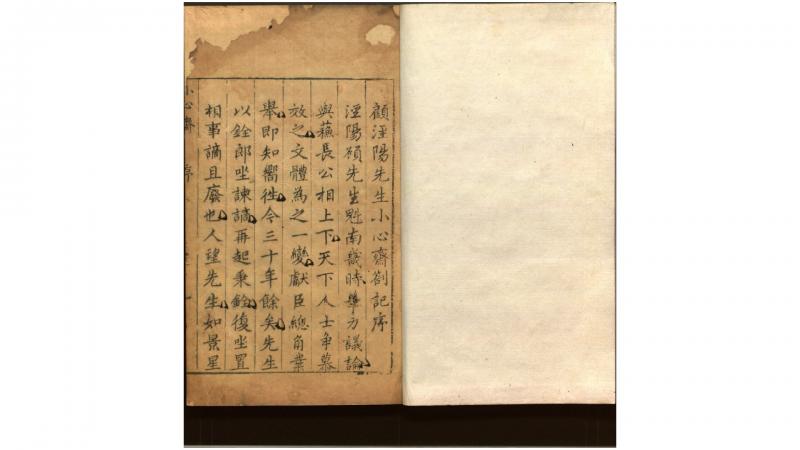 顧涇陽先生小心齋劄記序
涇陽顧先生魁南畿時舉子議論
與蘓長公相上下天下人士争慕
效之文體為之一變獻臣總角業
舉即知嚮徃今三十年餘矣先生
以銓郎坐諫謫再起秉銓復坐置
相事謫且廢也人望先生如景星
小心齋 序